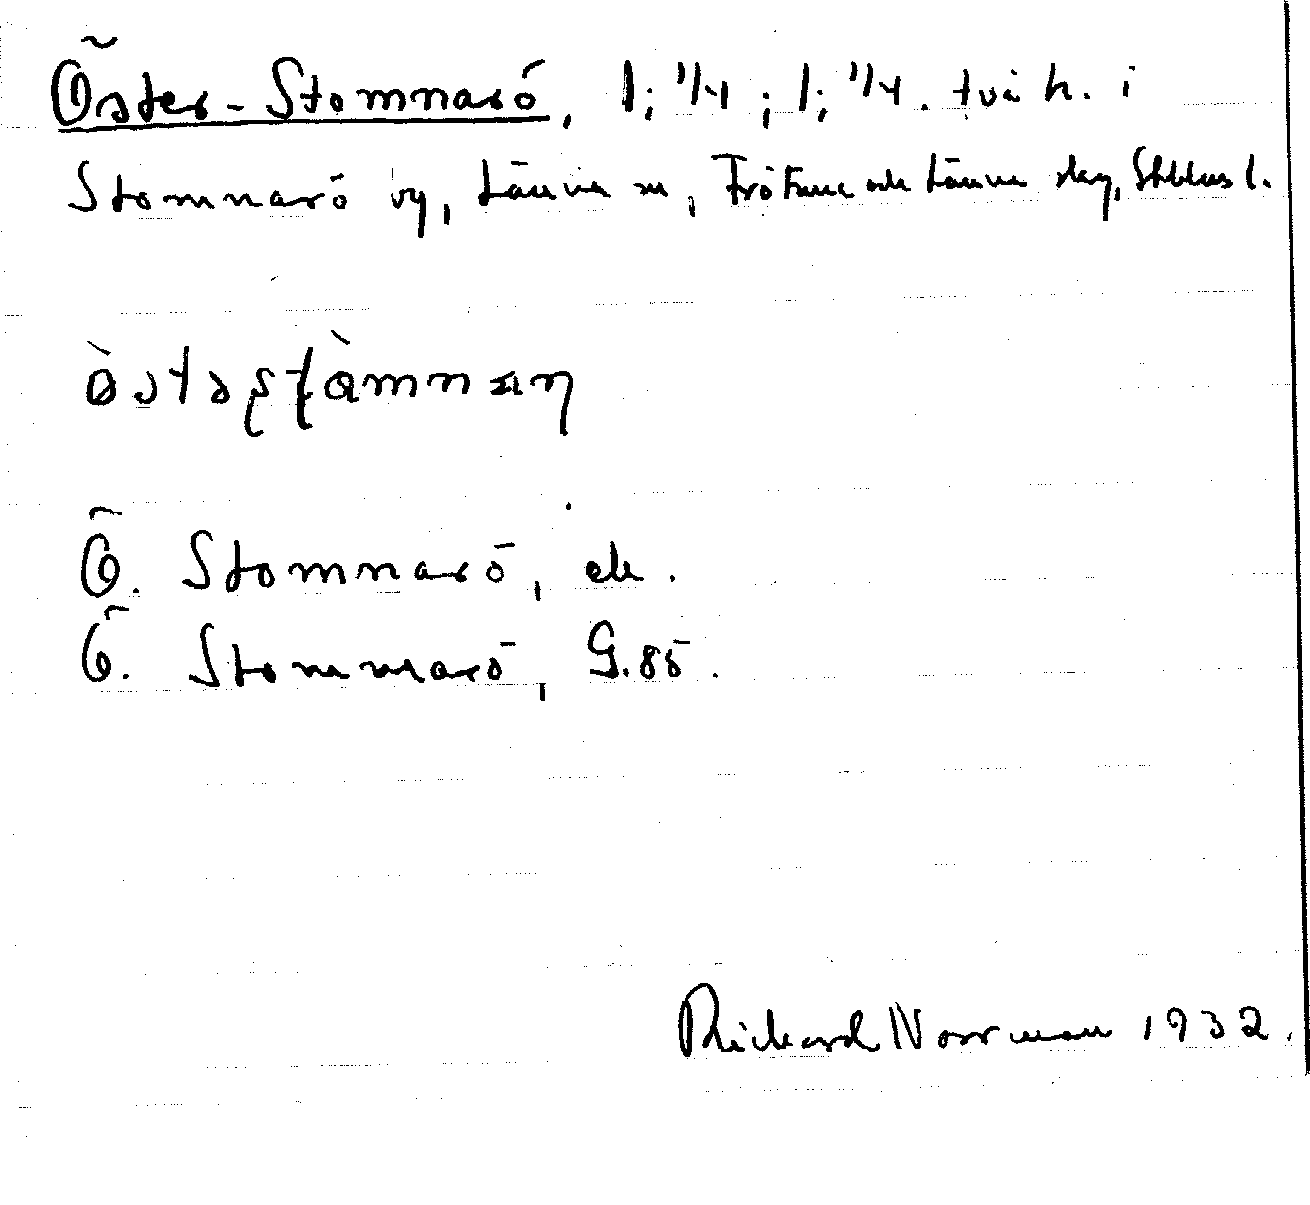 Öster-Stomnarö, 1; 1/4; 1; 1/4. två h. i
Stomnarö by, Länna sn, Frötuna och Länna skg, Sthlms l.
Ö. Stomnarö, ek.
Ö. Stommarö, G. 85.
Rickard Norrman 1932.